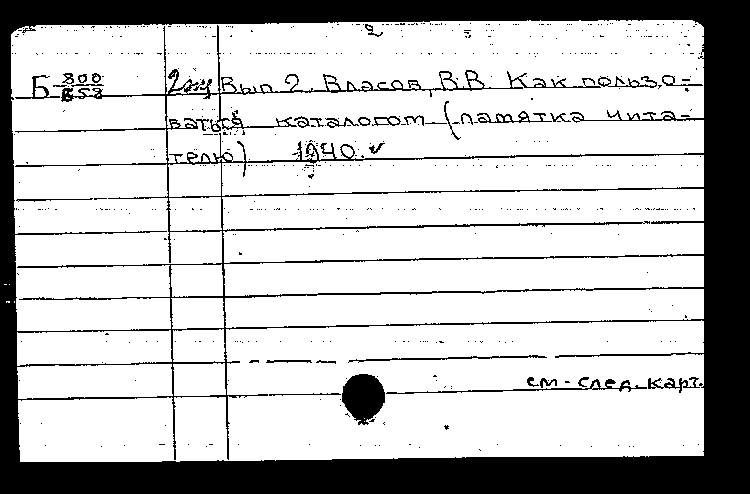 2
Б 800/658 2 экз Вып 2. Власов, В.В. Как пользо-
ваться каталогом (памятка чита-
телю) 1940.
см. след. карт.